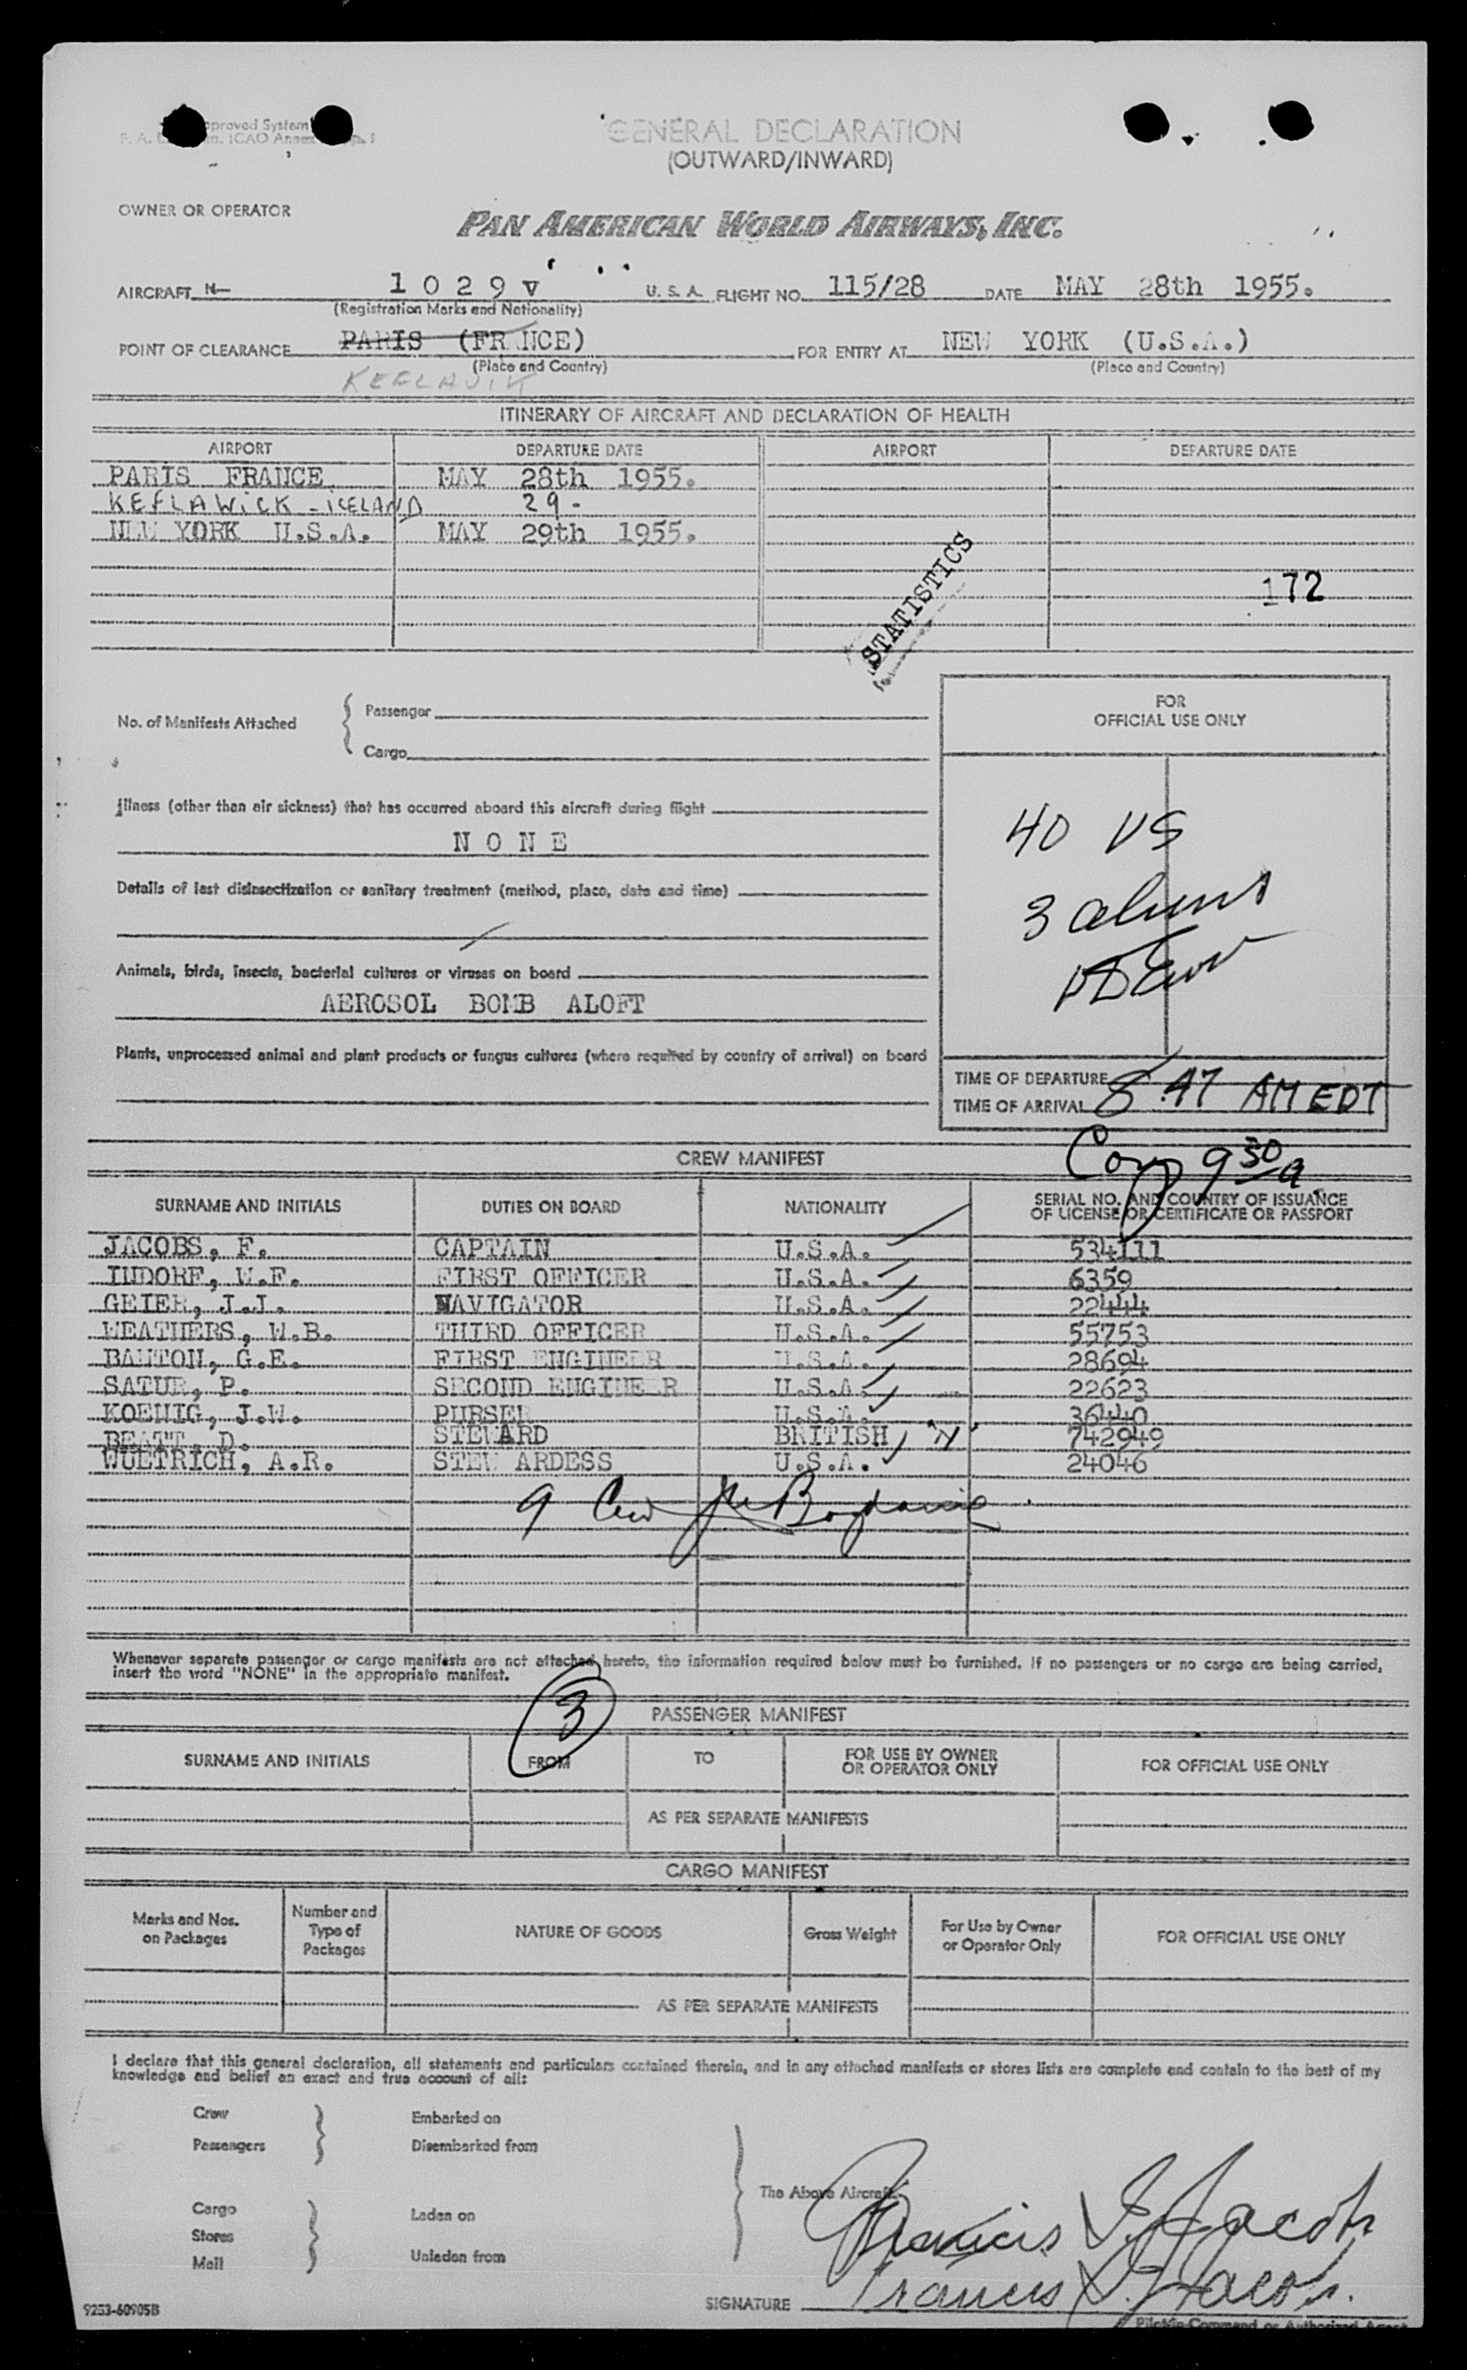 Approved System
ICAO Annex
GENERAL DECLARATION
(OUTWARD/INWARD)
OWNER OR OPERATOR
PAN AMERICAN WORLD AIRWAYS, INC.
AIRCRAFT N- 1 0 2 9 V U. S. A. FLIGHT NO. 115/28 DATE MAY 28th 1955.
(Registration Marks and Nationality)
POINT OF CLEARANCE PARIS (FRANCE) FOR ENTRY AT NEW YORK (U.S.A.)
(Place and Country) (Place and Country)
KEFLAVIK
ITINERARY OF AIRCRAFT AND DECLARATION OF HEALTH
AIRPORT DEPARTURE DATE AIRPORT DEPARTURE DATE
PARIS FRANCE MAY 28th 1955.
KEFLAWICK - ICELAND 29 -
NEW YORK U.S.A. MAY 29th 1955.
STATISTICS
172
FOR
OFFICIAL USE ONLY
No. of Manifests Attached { Passenger
Cargo
Illness (other than air sickness) that has occurred aboard this aircraft during flight
N O N E
40 US
Details of last disinsectization or sanitary treatment (method, place, date and time)
3 aliens
Animals, birds, insects, bacterial cultures or viruses on board
AEROSOL BOMB ALOFT
Plants, unprocessed animal and plant products or fungus cultures (where required by country of arrival) on board
TIME OF DEPARTURE
TIME OF ARRIVAL 8:47 AM EDT
CREW MANIFEST
9 30 a
SURNAME AND INITIALS DUTIES ON BOARD NATIONALITY SERIAL NO. AND COUNTRY OF ISSUANCE
OF LICENSE OR CERTIFICATE OR PASSPORT
JACOBS, F. CAPTAIN U.S.A. 534111
INDORF, W.F. FIRST OFFICER U.S.A. 6359
GEIER, J.J. NAVIGATOR U.S.A. 22444
WEATHERS, W.B. THIRD OFFICER U.S.A. 55753
BANTON, G.E. FIRST ENGINEER U.S.A. 28694
SATUR, P. SECOND ENGINEER U.S.A. 22623
KOENIG, J.W. PURSER U.S.A. 36440
BEATT, D. STEWARD BRITISH 742949
WUETRICH, A.R. STEWARDESS U.S.A. 24046
9 Crew
Whenever separate passenger or cargo manifests are not attached hereto, the information required below must be furnished. If no passengers or no cargo are being carried,
insert the word "NONE" in the appropriate manifest.
3
PASSENGER MANIFEST
SURNAME AND INITIALS FROM TO FOR USE BY OWNER
OR OPERATOR ONLY FOR OFFICIAL USE ONLY
AS PER SEPARATE MANIFESTS
CARGO MANIFEST
Marks and Nos.
on Packages Number and
Type of
Packages NATURE OF GOODS Gross Weight For Use by Owner
or Operator Only FOR OFFICIAL USE ONLY
AS PER SEPARATE MANIFESTS
I declare that this general declaration, all statements and particulars contained therein, and in any attached manifests or stores lists are complete and contain to the best of my
knowledge and belief an exact and true account of all:
Crew Embarked on
Passengers Disembarked from
The Above Aircraft.
Cargo Laden on
Stores
Mail Unladen from
Francis J. Jacobs
SIGNATURE Francis J. Jacobs.
Pilot-in-Command or Authorized Agent
9253-60905B